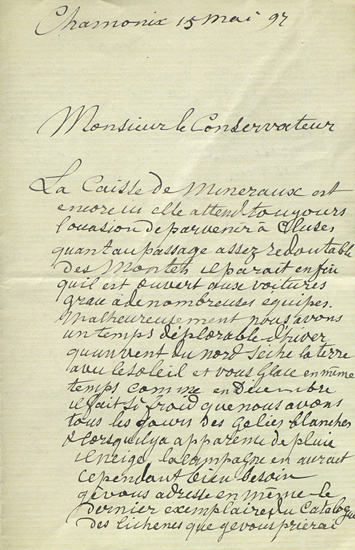 Chamonix 15 mai 97
Monsieur le Conservateur
La Caisse de Mineraux est
encore ici elle attend toujours
l'ocasion de parvenir à Cluses
quant au passage assez redoutable
des Montets il parait enfin
qu'il est ouvert aux voitures
grace à de nombreuses equipes.
Malheureusement nous avons
un temps déplorable d'hiver
qu'un vent du nord seiche la terre
avec le soleil et vous glace en même
temps comme en Décembre
il fait si froid que nous avons
tous les jours des Gelées blanches
& lorsqu'il y a apparence de pluie
il neige, la campagne en aurait
cependant bien besoin
ge vous adresse en même le
dernier exemplaire du Catalogue
des lichenes que ge vous prierai